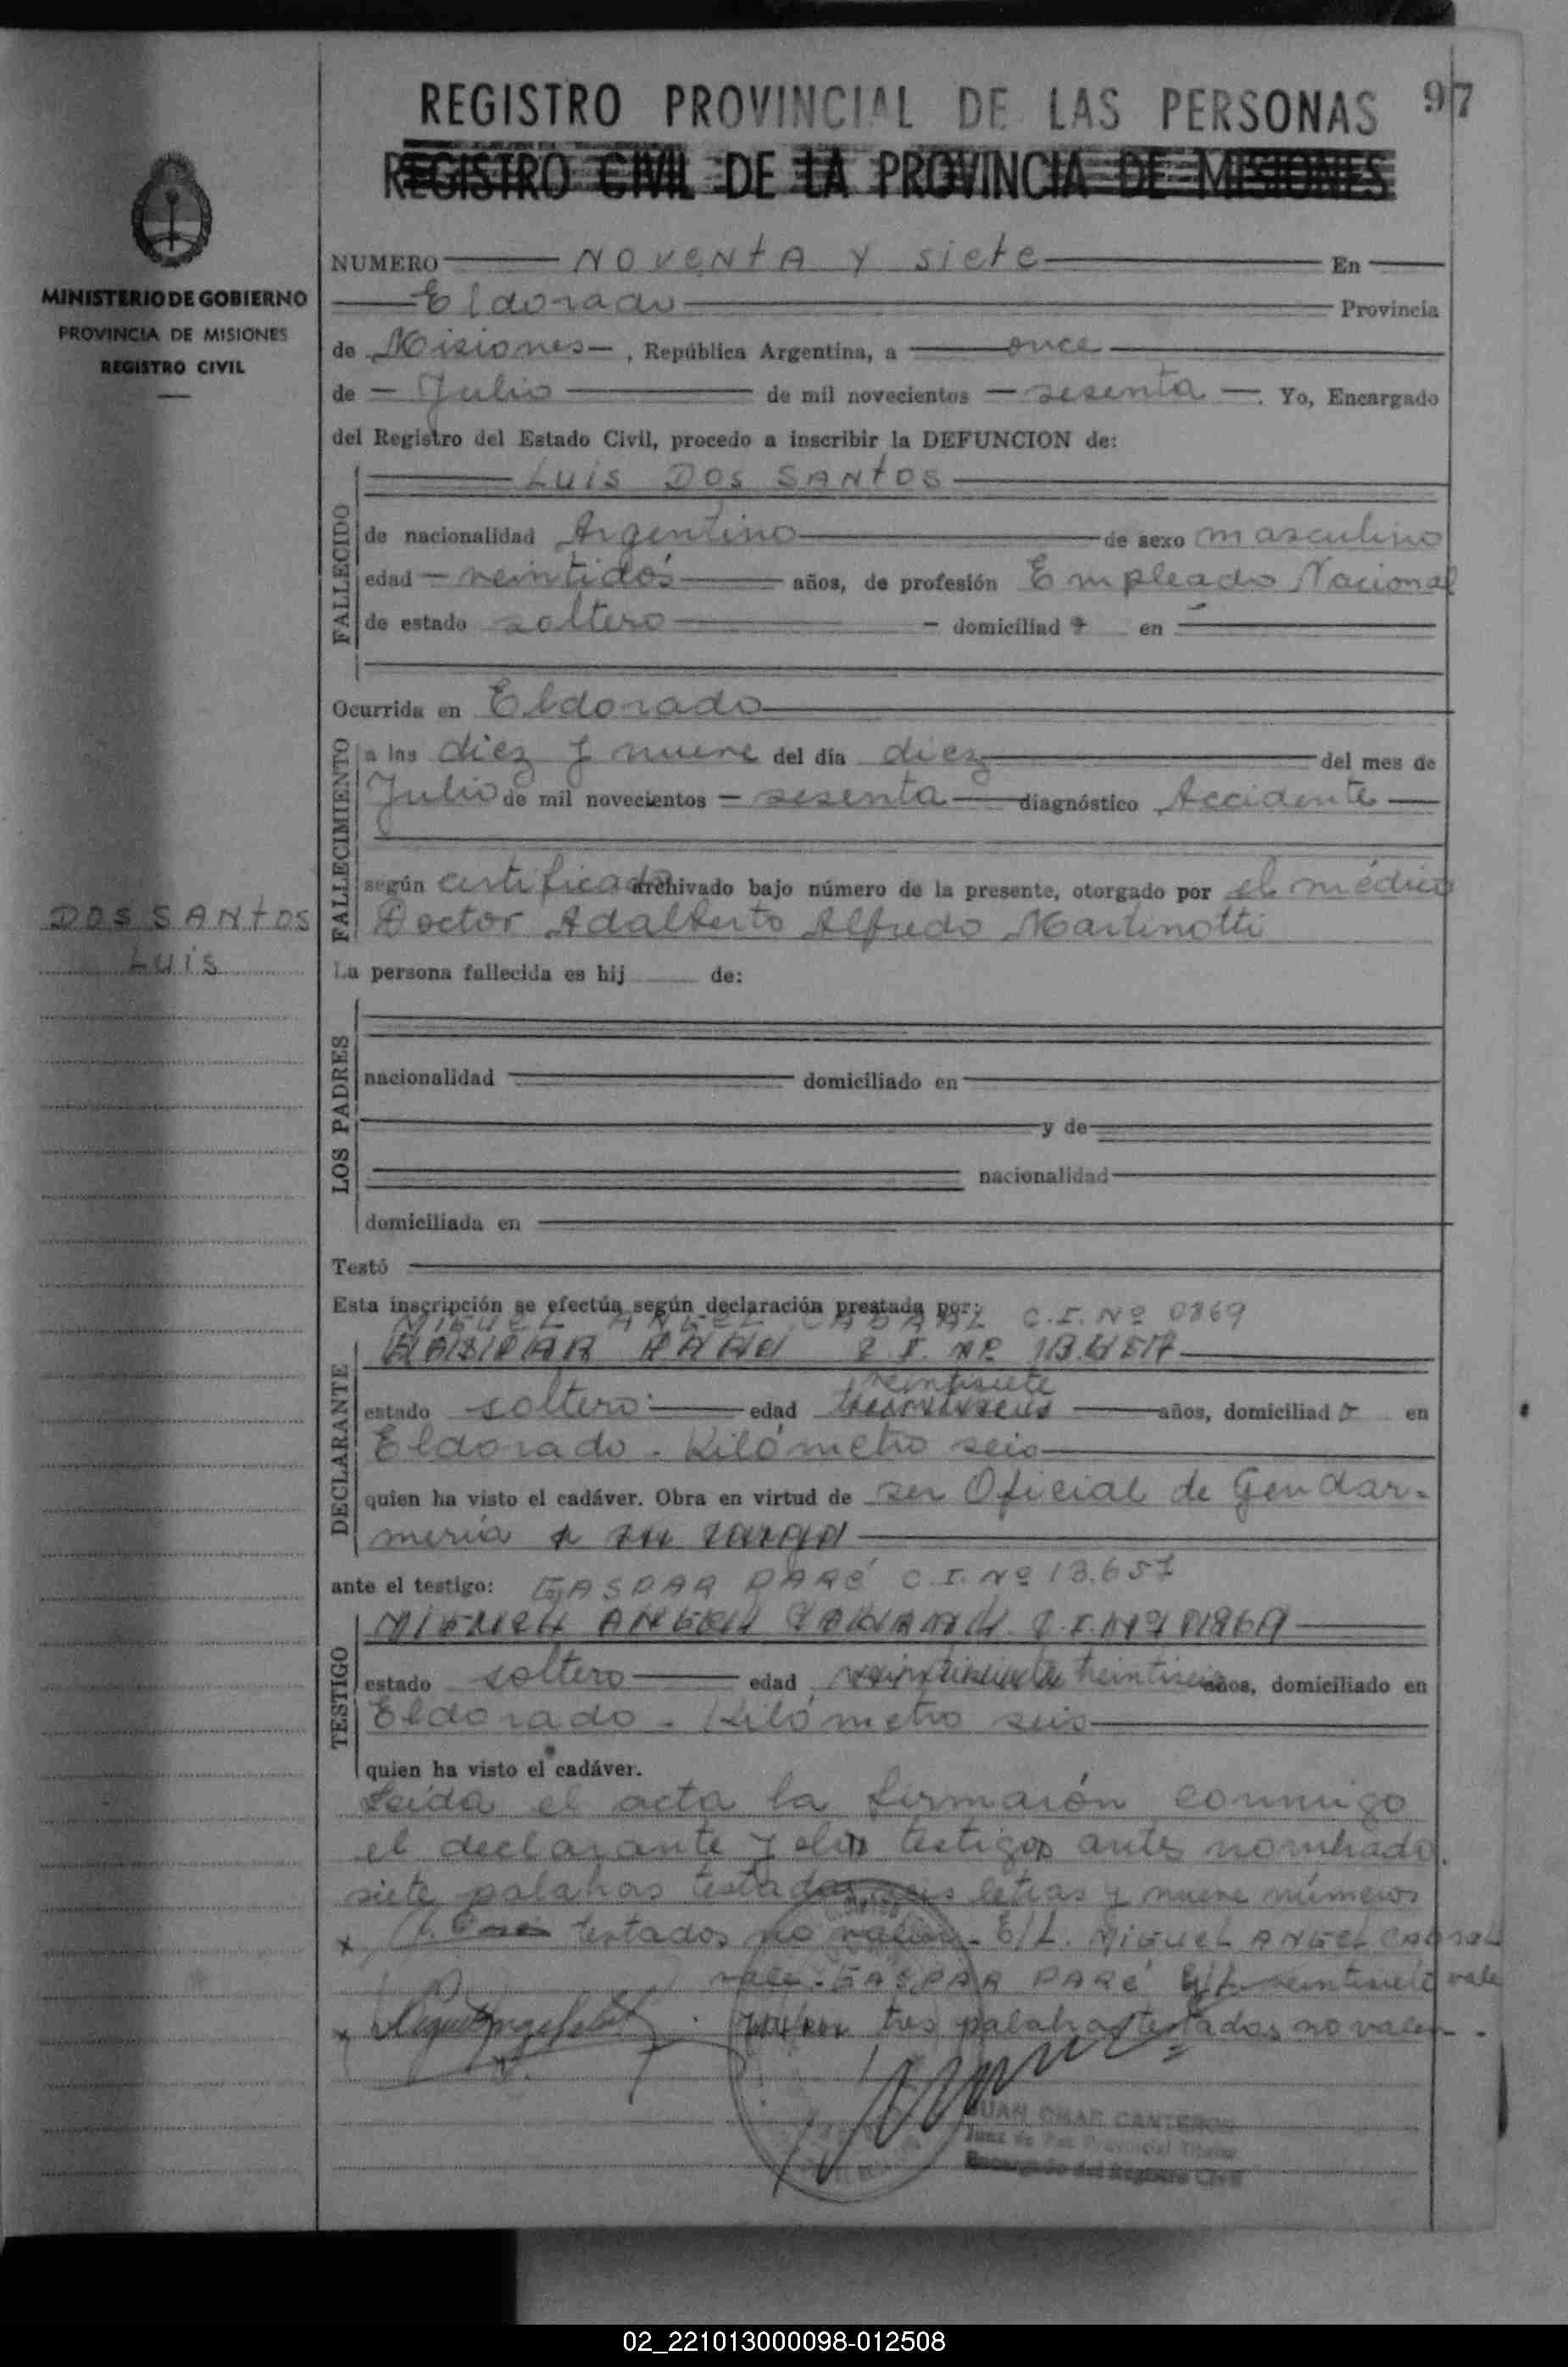 REGISTRO PROVINCIAL DE LAS PERSONAS 97
REGISTRO CIVIL DE LA PROVINCIA DE MISIONES
MINISTERIO DE GOBIERNO
PROVINCIA DE MISIONES
REGISTRO CIVIL
NUMERO NOVENTA Y siete En
Eldorado Provincia
de Misiones, República Argentina, a once
de Julio de mil novecientos sesenta. Yo, Encargado
del Registro del Estado Civil, procedo a inscribir la DEFUNCION de:
FALLECIDO
Luis DOS SANTOS
de nacionalidad Argentino de sexo masculino
edad veintidós años, de profesión Empleado Nacional
de estado soltero domiciliad en
Ocurrida en Eldorado
FALLECIMIENTO
a las diez y nueve del día diez del mes de
Julio de mil novecientos sesenta diagnóstico Accidente
según certificado archivado bajo número de la presente, otorgado por el médico
Doctor Adalberto Alfredo Martinotti
DOS SANTOS
Luis
La persona fallecida es hij de:
LOS PADRES
nacionalidad domiciliado en
y de
nacionalidad
domiciliada en
Testó
Esta inscripción se efectúa según declaración prestada por:
MIGUEL ANGEL CABRAL C.I. Nº 0869
DECLARANTE
GASPAR PARÉ C.I. Nº 13.657
veintisiete
estado soltero edad treintiseis años, domiciliado en
Eldorado - Kilómetro seis
quien ha visto el cadáver. Obra en virtud de ser Oficial de Gendar-
mería a su cargo
ante el testigo: GASPAR PARÉ C.I. Nº 13.657
TESTIGO
MIGUEL ANGEL CABRAL C.I. Nº 0869
estado soltero edad veintisiete treintiseis años, domiciliado en
Eldorado - Kilómetro seis
quien ha visto el cadáver.
Leída el acta la firmarón conmigo
el declarante y el testigo antes nombrado.
siete palabras testadas seis letras y nueve números
testados no valen - E/L. MIGUEL ANGEL CABRAL
vale - GASPAR PARÉ E/L veintisiete vale
tres palabras testadas no valen -
JUAN OMAR CANTEROS
Juez de Paz Provincial Titular
Encargado del Registro Civil
02_221013000098-012508